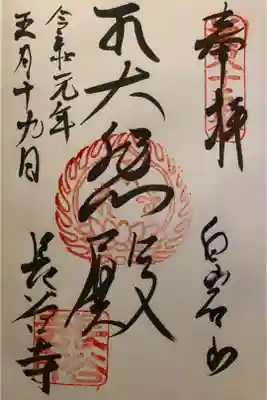 奉拝
白岩山
大悲殿
令和元年
五月十九日
長谷寺